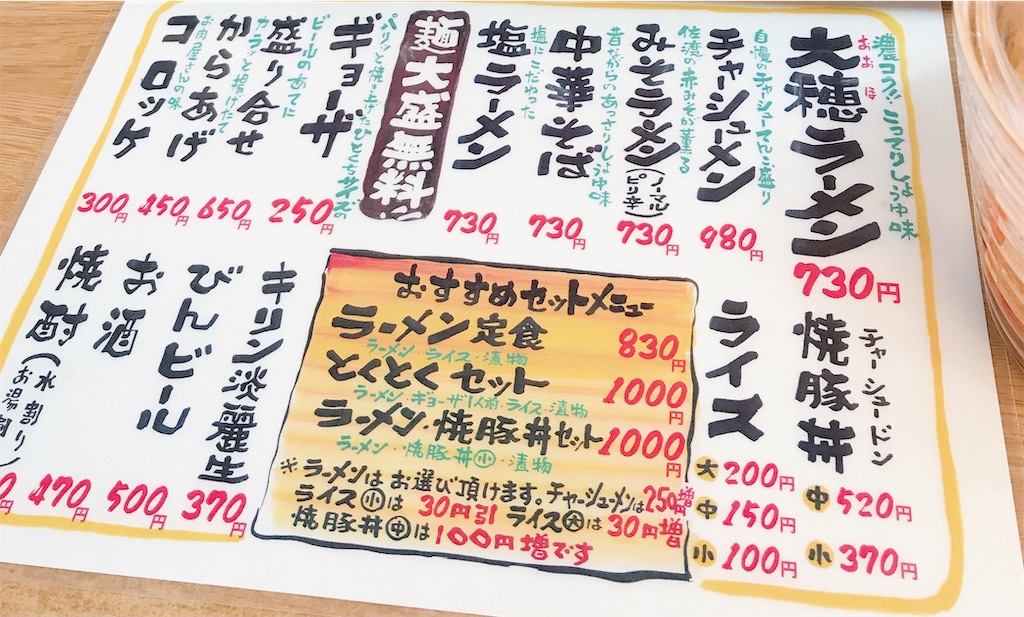 濃コク!! こってりしょうゆ味
おおほ
大穂ラーメン
730円
自慢のチャーシューてんこ盛り
チャーシューメン
980円
佐渡の赤みそが薫る
みそラーメン(ノーマル ピリ辛)
730円
昔ながらのあっさりしょうゆ味
中華そば
730円
塩にこだわった
塩ラーメン
730円
麺大盛無料
パリッと焼き上げたひとくちサイズの
ギョーザ
250円
ビールのあてに
盛り合せ
650円
カラッと揚げたて
からあげ
450円
お肉屋さんの味
コロッケ
300円
チャーシュードン
焼豚丼
中520円
小370円
ライス
大200円
中150円
小100円
おすすめセットメニュー
ラーメン定食 830円
ラーメン・ライス・漬物
とくとくセット 1000円
ラーメン・ギョーザ1人前・ライス・漬物
ラーメン・焼豚丼セット 1000円
ラーメン・焼豚丼小・漬物
※ラーメンはお選び頂けます。チャーシューメンは250円増
ライス小は30円引 ライス大は30円増
焼豚丼中は100円増です
キリン淡麗生
370円
びんビール
500円
お酒
470円
焼酎(水割り お湯割り)
0円